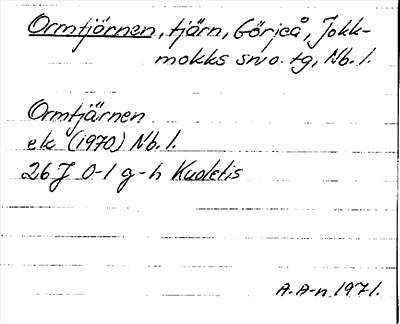 Ormtjörnen, tjärn, Görjeå, Jokk-
mokks sn o. tg, Nb. l.
Ormtjärnen
ek (1970) Nb. l.
26 J 0-1 g-h Kudetis
A. A-n 1971.